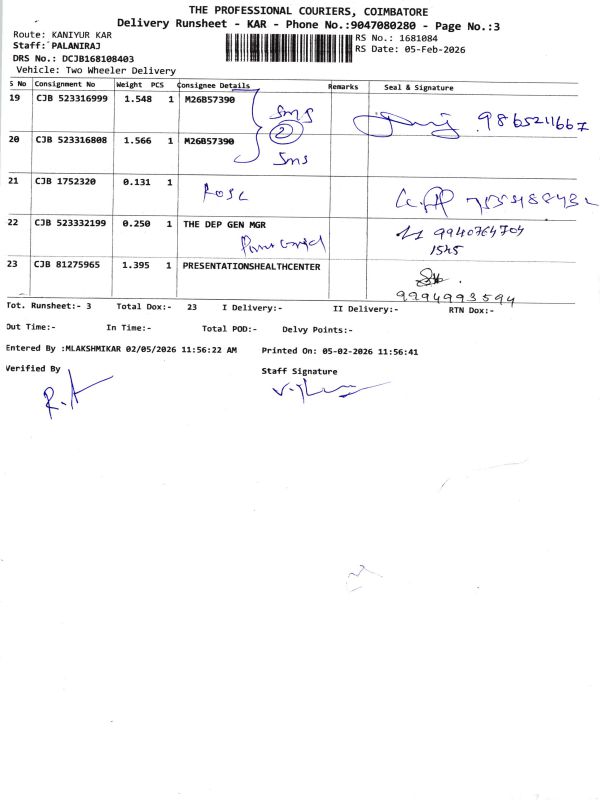 THE PROFESSIONAL COURIERS, COIMBATORE
Delivery Runsheet - KAR - Phone No.:9047080280 - Page No.:3
Route: KANIYUR KAR
RS No.: 1681084
Staff: PALANIRAJ
RS Date: 05-Feb-2026
DRS No.: DCJB168108403
Vehicle: Two Wheeler Delivery
S No Consignment No Weight PCS Consignee Details Remarks Seal & Signature
19 CJB 523316999 1.548 1 M26B57390
Sms
2
9865211667
20 CJB 523316808 1.566 1 M26B57390
Sms
21 CJB 1752320 0.131 1
22 CJB 523332199 0.250 1 THE DEP GEN MGR
9940764704
1545
23 CJB 81275965 1.395 1 PRESENTATIONSHEALTHCENTER
9994993594
Tot. Runsheet:- 3 Total Dox:- 23 I Delivery:- II Delivery:- RTN Dox:-
Out Time:- In Time:- Total POD:- Delvy Points:-
Entered By :MLAKSHMIKAR 02/05/2026 11:56:22 AM Printed On: 05-02-2026 11:56:41
Verified By Staff Signature